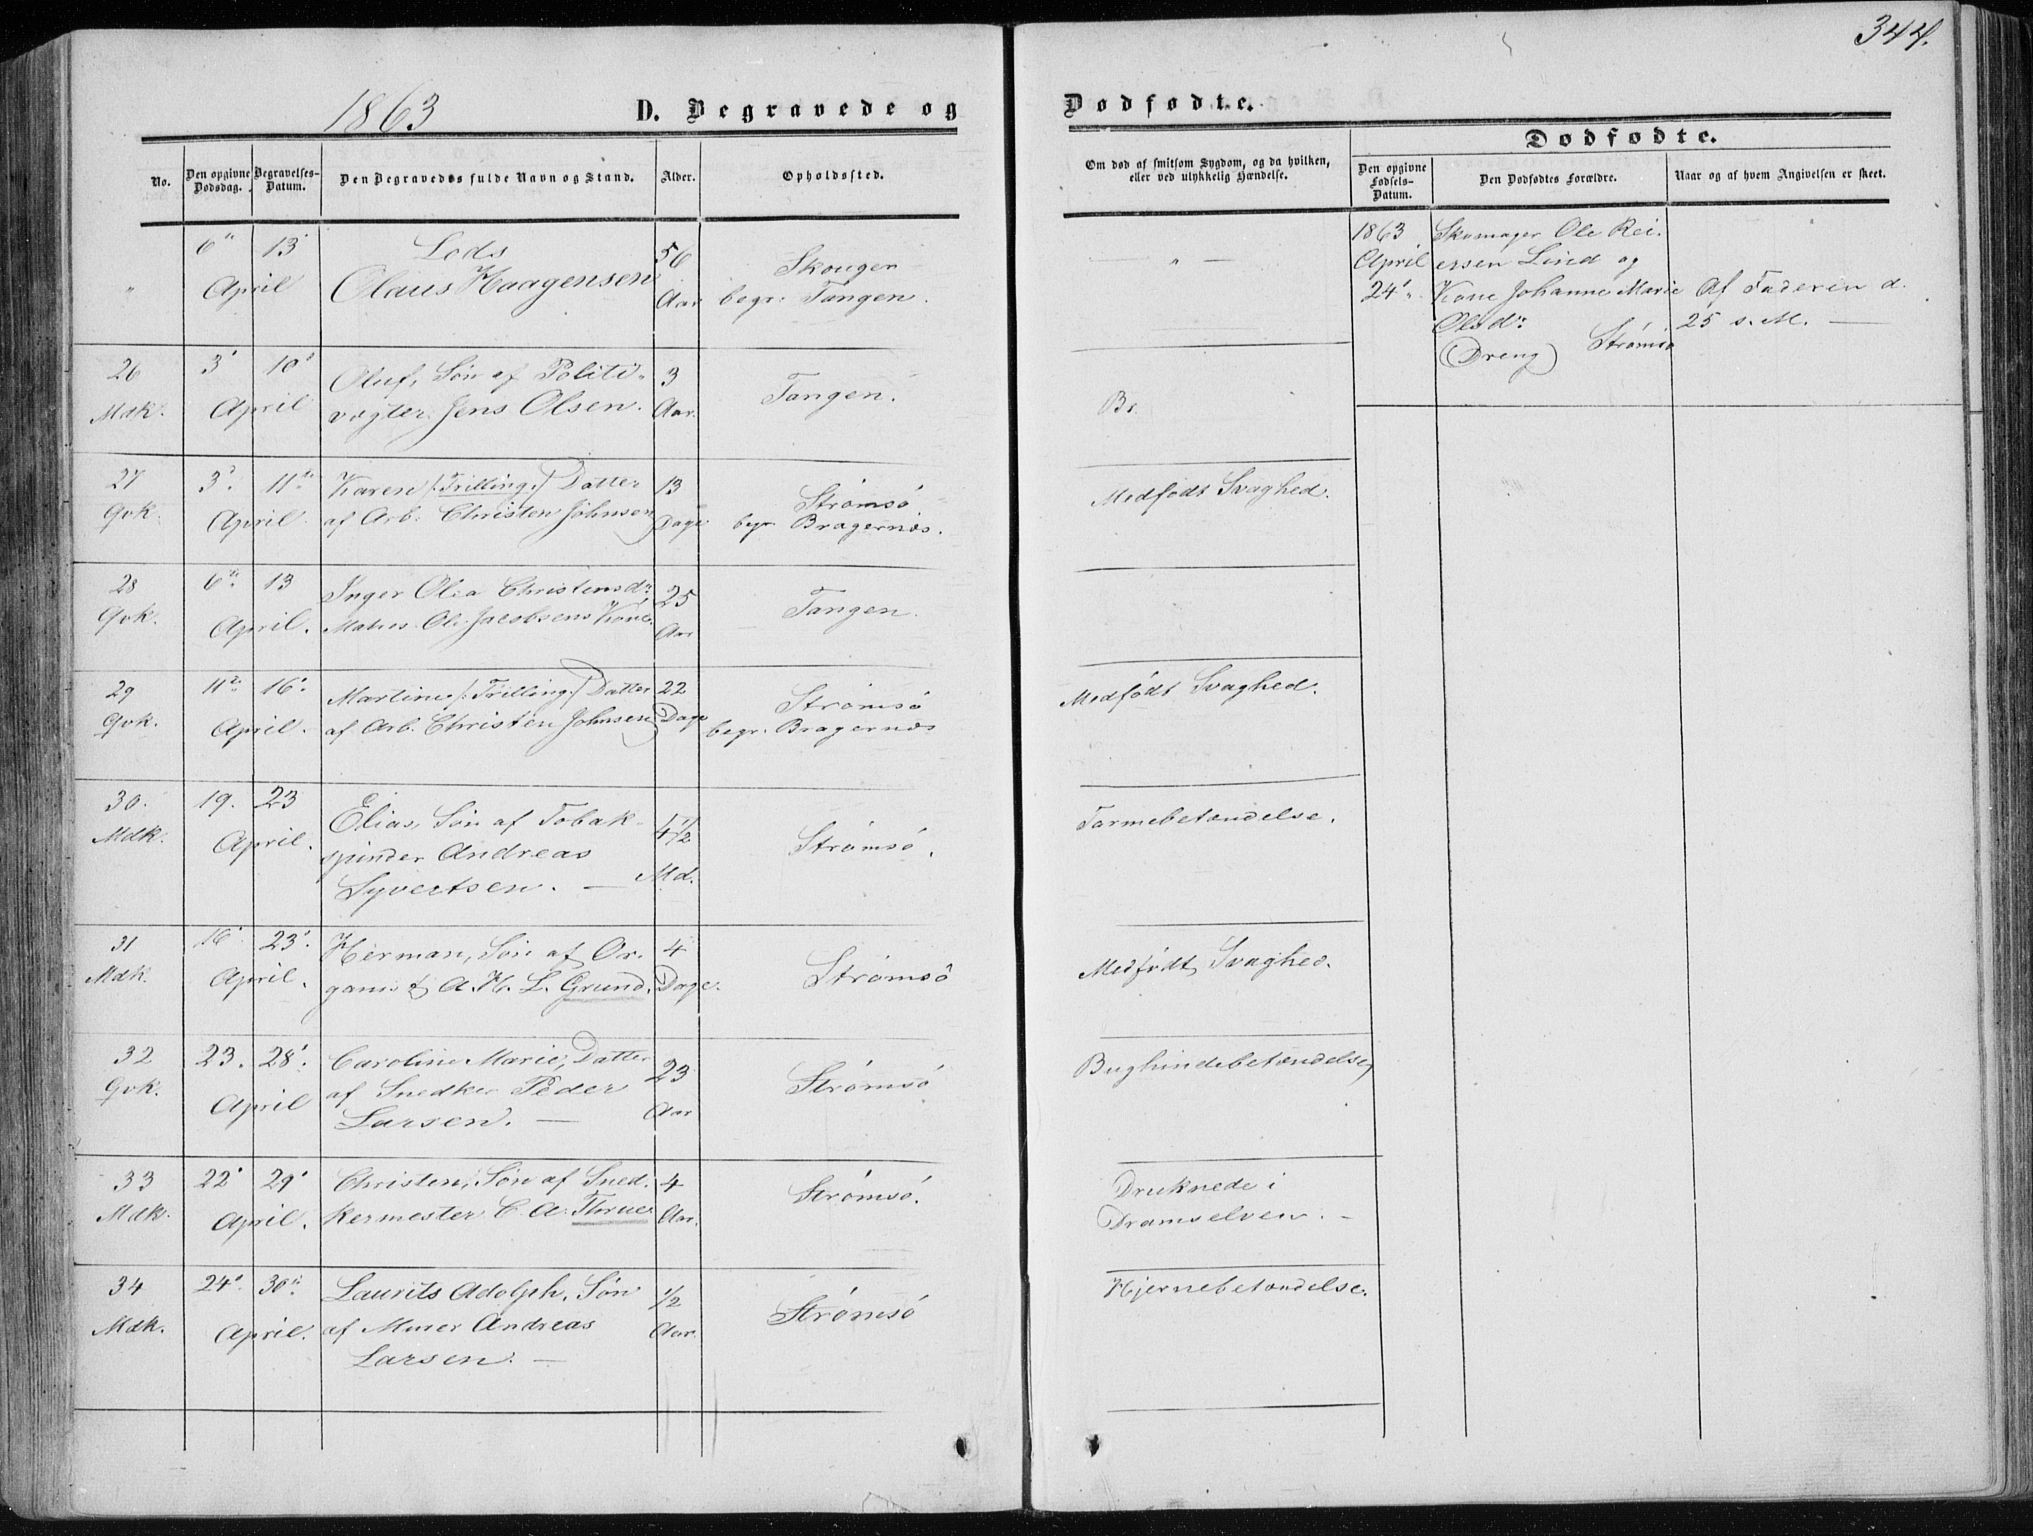 344.
1863
D. Begravede og Dødfødte.
No.
Den opgivne Dødsdag.
Begravelses-Datum.
Den Begravedes fulde Navn og Stand.
Alder.
Opholdssted.
Om død af smitsom Sygdom, og da hvilken,
eller ved ulykkelig Hændelse.
Dødfødte.
Den opgivne Fødsels-Datum.
Den Dødfødtes Forældre.
Naar og af hvem Angivelsen er skeet.
"
6te 13'
April
Lods
Olaus Haagensen
56
Aar
Skouger
begr. Tangen.
— " —
1863
April
24'
Skomager Ole Rei-
ersen Lind og
Kone Johanne Marie
Olsdr
(Dreng) Strømsø
Af Faderen d.
25 s. M. —
26
Mdk.
3' 10'
April
Oluf, Søn af Politi-
vægter Jens Olsen.
3
Aar.
Tangen.
Br.
27
Qvk.
3' 11te
April
Karen /:Trilling:/ Datter
af Arb. Christen Johnsen
13
Dage
Strømsø.
begr. Bragernæs.
Medfødt Svaghed.
28
Qvk.
6te 13
April.
Inger Olea Christensdr
Matros Ole Jacobsens Kone.
25
Aar
Tangen.
29
Qvk.
11te 16'
April.
Martine /:Trilling:/ Datter
af Arb. Christen Johnsen
22
Dage
Strømsø
begr. Bragernæs
Medfødt Svaghed.
30.
Mdk.
19. 23
April.
Elias, Søn af Tobak-
spinder Andreas
Syvertsen. —
4 1/2
Md.
Strømsø.
Tarmebetændelse.
31
Mdk.
16' 23'
April.
Herman, Søn af Or-
ganist A. H. L. Grund.
4
Dage.
Strømsø
Medfødt Svaghed.
32
Qvk.
23. 28'
April
Caroline Marie, Datter
af Snedker Peder
Larsen. —
23
Aar
Strømsø
Bughindebetændelse
33
Mdk.
22' 29'
April.
Christen, Søn af Sned-
kermester C. A. Thrue
4
Aar.
Strømsø.
Druknede i
Dramselven. —
34
Mdk.
24' 30te
April.
Laurits Adolph, Søn
af Murer Andreas
Larsen. —
1/2
Aar.
Strømsø
Hjernebetændelse.